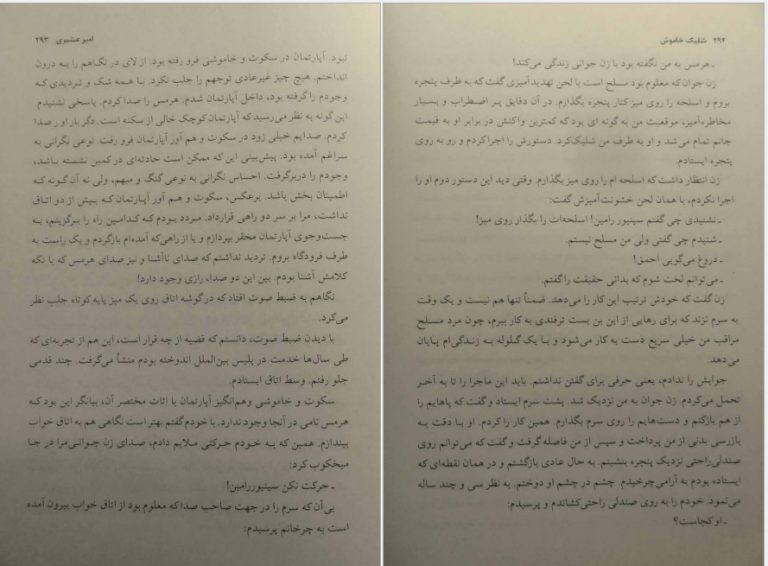 امیر عشیری ۲۹۳
نبود. آپارتمان در سکوت و خاموشی فرو رفته بود. از لای در نگاهم را به درون
انداختم. هیچ چیز غیرعادی توجهم را جلب نکرد. با همه شک و تردیدی که
وجودم را گرفته بود، داخل آپارتمان شدم. هرمس را صدا کردم. پاسخی نشنیدم.
این گونه به نظر می‌رسید که آپارتمان کوچک خالی از سکنه است. دگر بار او را صدا
کردم. صدایم خیلی زود در سکوت و هم آور آپارتمان فرو رفت. نوعی نگرانی به
سراغم آمده بود. پیش‌بینی این که ممکن است حادثه‌ای در کمین نشسته باشد،
وجودم را دربرگرفت. احساس نگرانی به نوعی گنگ و مبهم، ولی نه آن گونه که
اطمینان بخش باشد. برعکس، سکوت و هم آور آپارتمان که بیش از دو اتاق
نداشت، مرا بر سر دو راهی قرارداد. مردد بودم که کدامین راه را برگزینم، به
جست‌وجوی آپارتمان محقر بپردازم و یا از راهی که آمده‌ام بازگردم و یک راست به
طرف فرودگاه بروم. تردید نداشتم که صدای ناآشنا و نیز صدای هرمس که با تکه
کلامش آشنا بودم. بین این دو صدا، رازی وجود دارد!
نگاهم به ضبط صوت افتاد که در گوشه اتاق روی یک میز پایه کوتاه جلب نظر
می‌کرد.
با دیدن ضبط صوت، دانستم که قضیه از چه قرار است، این هم از تجربه‌ای که
طی سال‌ها خدمت در پلیس بین‌الملل اندوخته بودم منشأ می‌گرفت. چند قدمی
جلو رفتم. وسط اتاق ایستادم.
سکوت و خاموشی وهم‌انگیز آپارتمان با اثاث مختصر آن، بیانگر این بود که
هرمس نامی در آنجا وجود ندارد. با خودم گفتم بهتر است نگاهی هم به اتاق خواب
بیندازم. همین که به خودم حرکتی ملایم دادم، صدای زن جوانی مرا در جا
میخکوب کرد:
ـ حرکت نکن سینیور رامین!
بی آن که سرم را در جهت صاحب صدا که معلوم بود از اتاق خواب بیرون آمده
است به چرخانم پرسیدم:
۲۹۴ شلیک خاموش
ـ هرمس به من نگفته بود با زن جوانی زندگی می‌کند!
زن جوان که معلوم بود مسلح است با لحن تهدیدآمیزی گفت که به طرف پنجره
بروم و اسلحه را روی میز کنار پنجره بگذارم. در آن دقایق پر اضطراب و بسیار
مخاطره‌آمیز، موقعیت من به گونه ای بود که کمترین واکنش در برابر او به قیمت
جانم تمام می‌شد و او به طرف من شلیک کرد. دستورش را اجرا کردم و رو به روی
پنجره ایستادم.
زن انتظار داشت که اسلحه ام را روی میز بگذارم. وقتی دید این دستور دوم او را
اجرا نکردم، با همان لحن خشونت‌آمیزش گفت:
ـ نشنیدی چی گفتم سینیور رامین! اسلحه‌ات را بگذار روی میز!
ـ شنیدم چی گفتی ولی من مسلح نیستم.
ـ دروغ می‌گویی احمق!
ـ می‌توانم لخت شوم که بدانی حقیقت را گفتم.
زن گفت که خودش ترتیب این کار را می‌دهد. ضمناً تنها هم نیست و یک وقت
به سرم نزند که برای رهایی از این بن بست ترفندی به کار ببرم، چون مرد مسلح
مراقب من خیلی سریع دست به کار می‌شود و با یک گلوله به زندگی‌ام پایان
می‌دهد.
جوابش را ندادم، یعنی حرفی برای گفتن نداشتم. باید این ماجرا را تا به آخر
تحمل می‌کردم. زن جوان به من نزدیک شد. پشت سرم ایستاد و گفت که پاهایم را
از هم بازکنم و دست‌هایم را روی سرم بگذارم. همین کار را کردم. او با دقت به
بازرسی بدنی از من پرداخت و سپس از من فاصله گرفت و گفت که می‌توانم روی
صندلی راحتی نزدیک پنجره بنشینم. به حال عادی بازگشتم و در همان نقطه‌ای که
ایستاده بودم به آرامی چرخیدم. چشم در چشم او دوختم. به نظر سی و چند ساله
می‌نمود. خودم را به روی صندلی راحتی کشاندم و پرسیدم:
ـ او کجاست؟